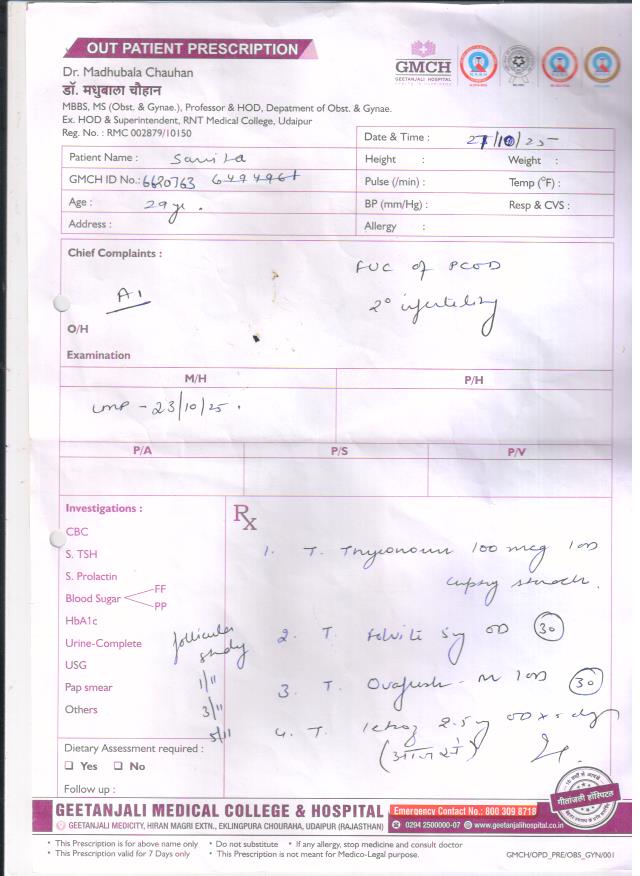 OUT PATIENT PRESCRIPTION
Dr. Madhubala Chauhan
डॉ. मधुबाला चौहान
MBBS, MS (Obst. & Gynae.), Professor & HOD, Depatment of Obst. & Gynae.
Ex. HOD & Superintendent, RNT Medical College, Udaipur
Reg. No. : RMC 002879/10150
GMCH
GEETANJALI HOSPITAL
Date & Time : 27/10/25
Patient Name :
Height : Weight :
GMCH ID No.: 6680763 6494961
Pulse (/min) : Temp (°F) :
Age : 29 yr.
BP (mm/Hg) : Resp & CVS :
Address :
Allergy :
Chief Complaints :
FUC of PCOD
A1
2° infertility
O/H
Examination
M/H P/H
LMP - 23/10/25.
P/A P/S P/V
Investigations :
Rx
CBC
S. TSH
1. T. Thyronorm 100 mcg 1OD
empty stomach.
S. Prolactin
Blood Sugar FF
PP
HbA1c
Urine-Complete
follicular study
2. T. Folvite 5mg OD 30
USG
Pap smear
1/11
3. T. 1OD 30
Others
3/11
5/11
4. T. Letroz 2.5mg OD x 5 days
(आज से)
Dietary Assessment required :
Yes No
Follow up :
गीतांजली हॉस्पिटल
GEETANJALI MEDICAL COLLEGE & HOSPITAL
Emergency Contact No.: 800 309 8718
GEETANJALI MEDICITY, HIRAN MAGRI EXTN., EKLINGPURA CHOURAHA, UDAIPUR (RAJASTHAN)
0294 2500000-07 www.geetanjalihospital.co.in
* This Prescription is for above name only * Do not substitute * If any allergy, stop medicine and consult doctor
* This Prescription valid for 7 Days only * This Prescription is not meant for Medico-Legal purpose.
GMCH/OPD_PRE/OBS_GYN/001